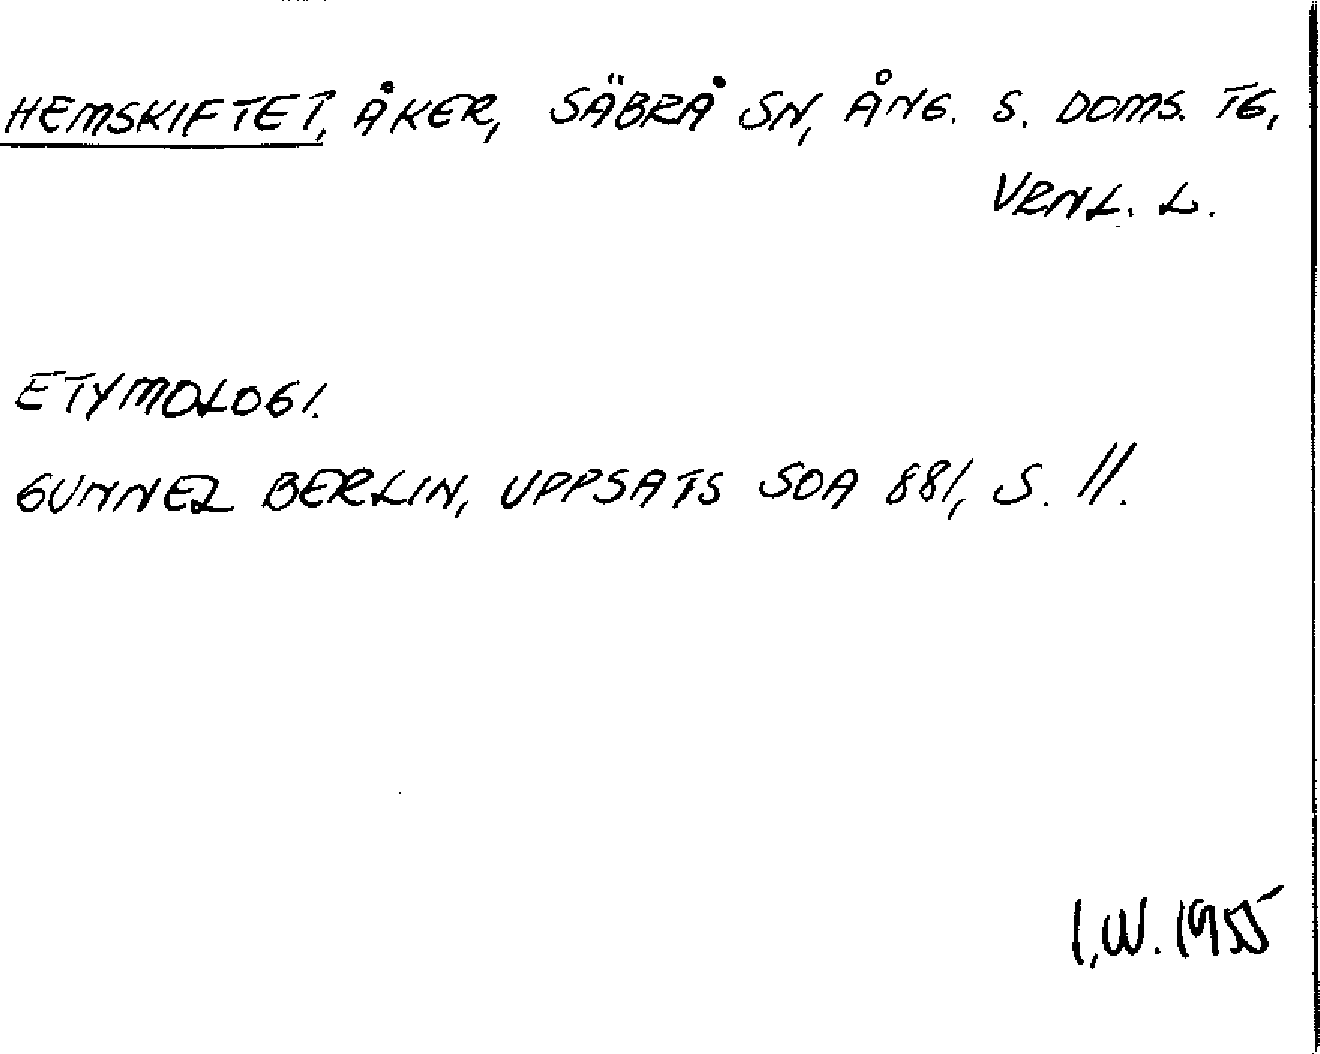 HEMSKIFTET, ÅKER, SÄBRÅ SN, ÅNG. S. DOMS. TG,
VRNL. L.
ETYMOLOGI.
GUNNEL BERLIN, UPPSATS SOA 881, S. 11.
I.W. 1955